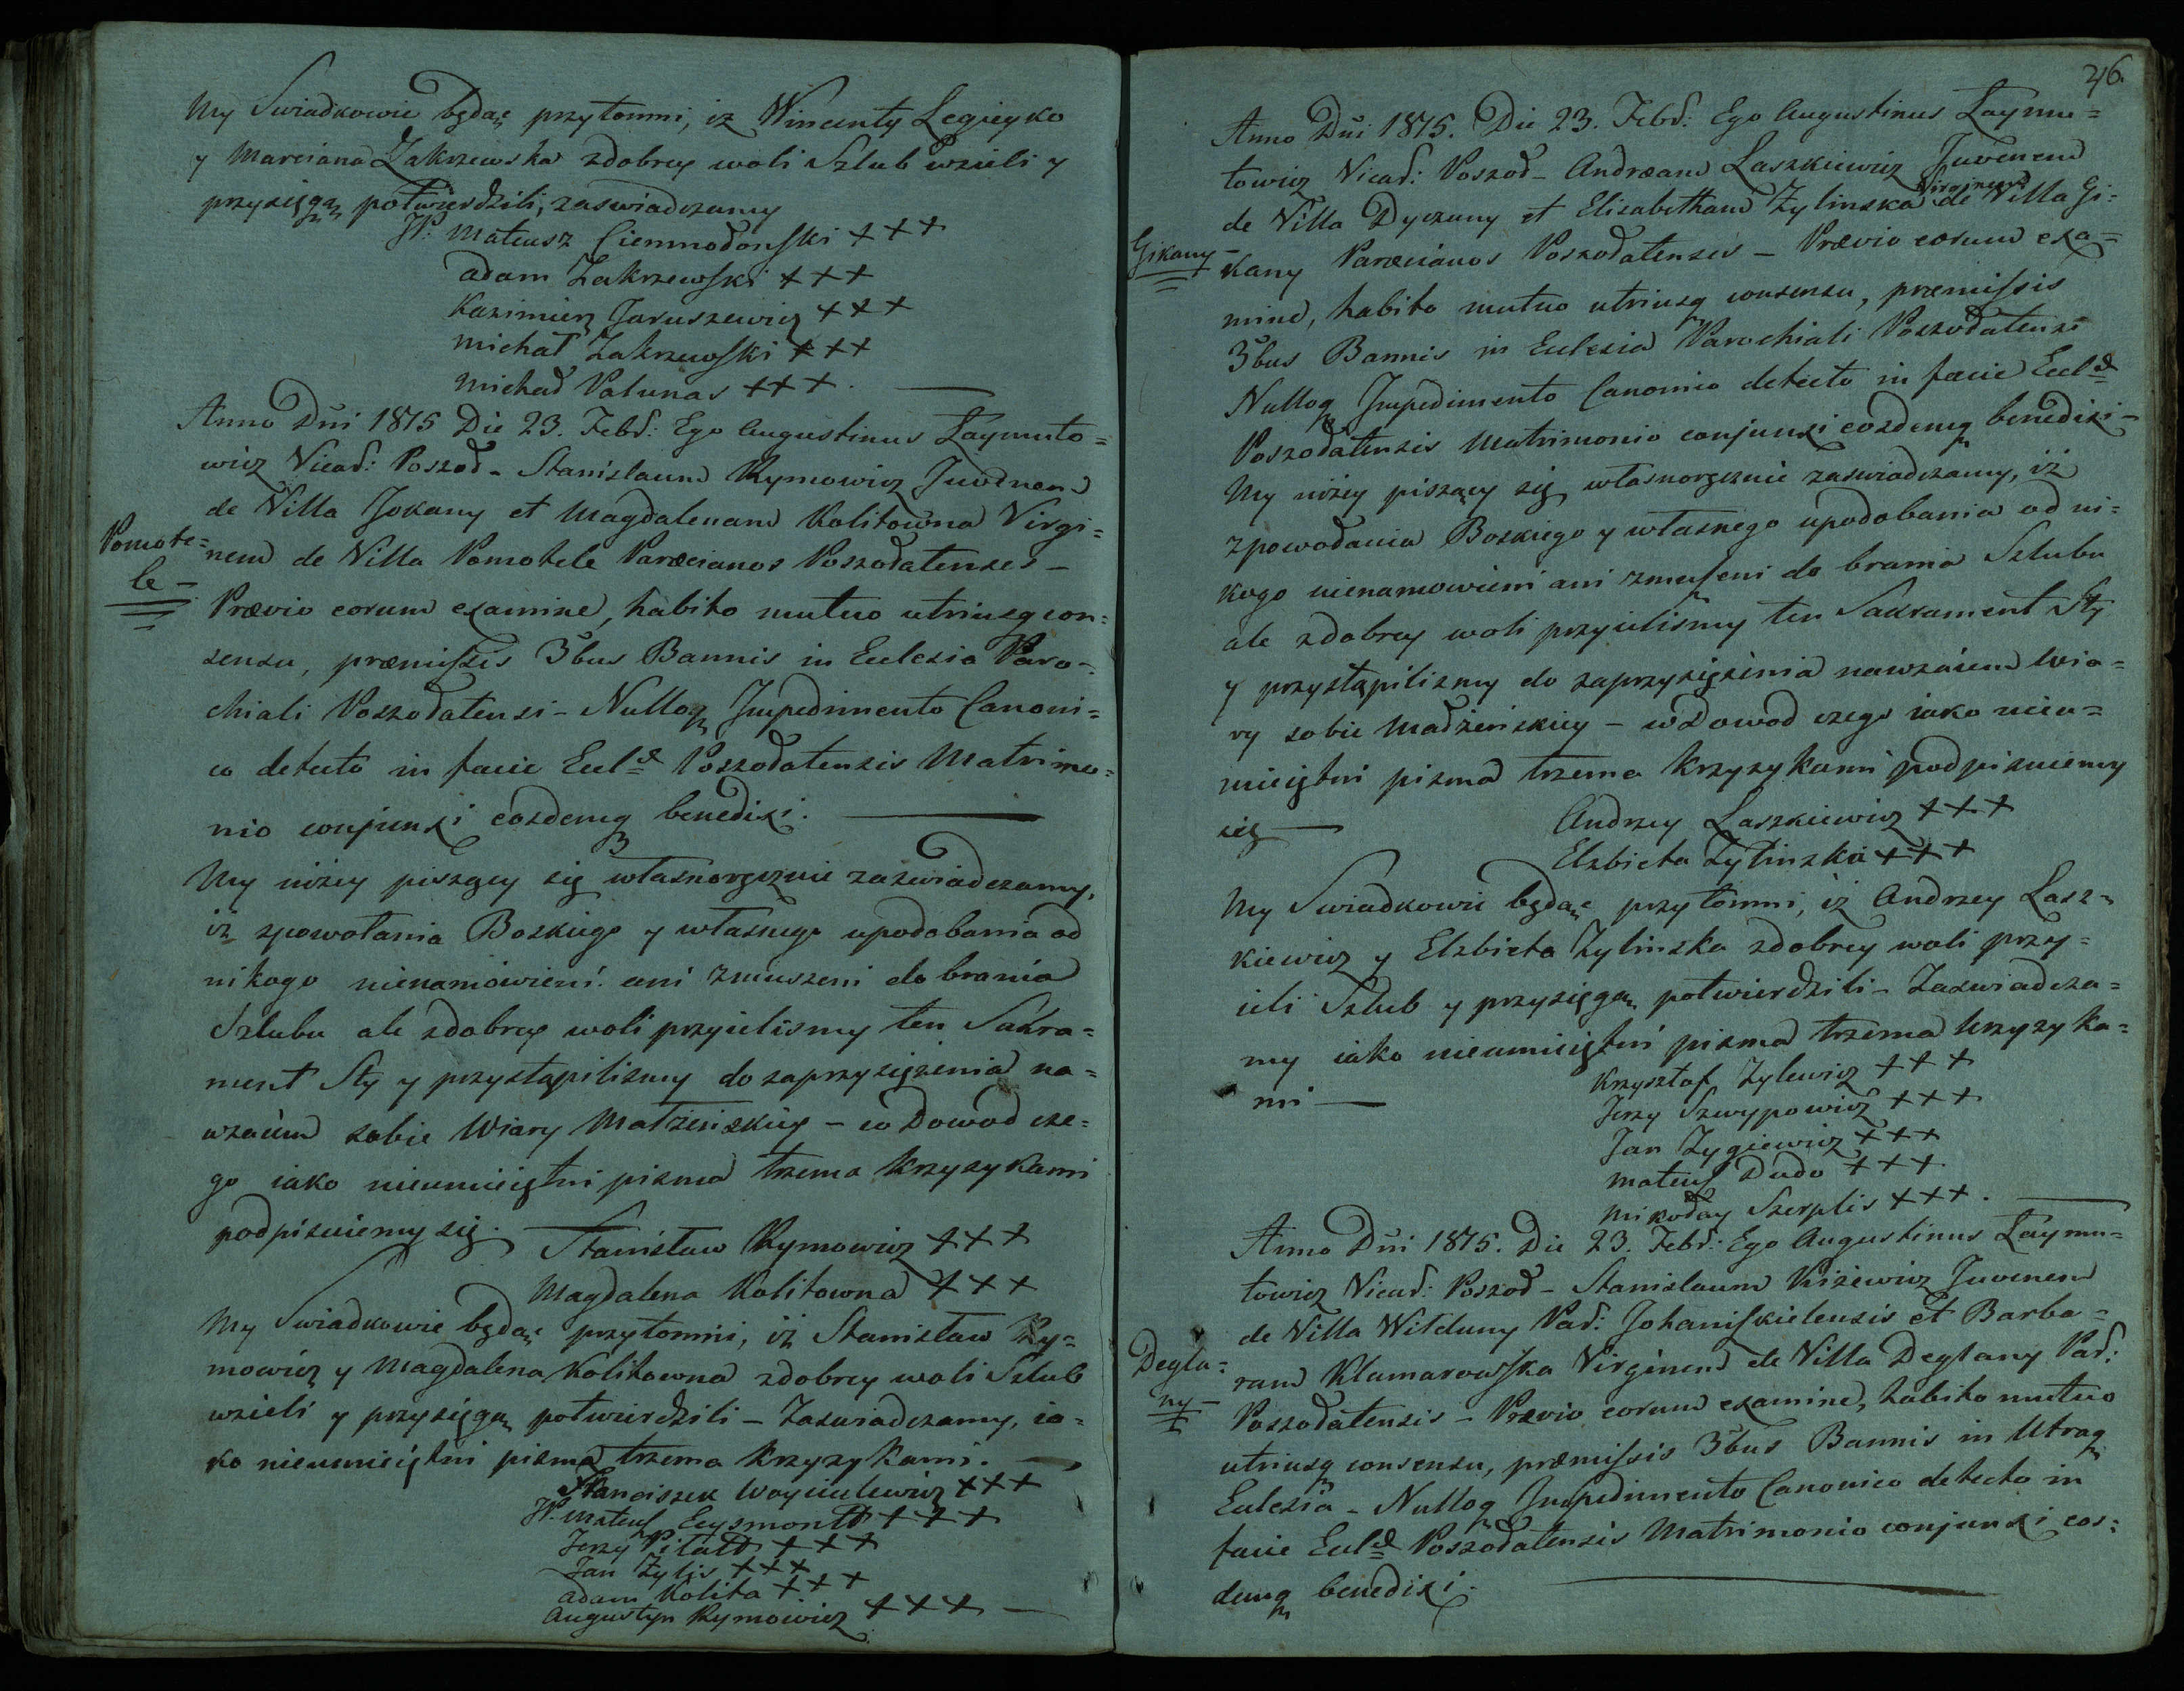 My Swiadkowie będąc przytomni, iz Wincenty Legieyko
y Marciana Zakrzewska zdobrey woli Szlub wzieli y
przysięgą potwierdzili, zaswiadczamy
JP. Mateusz Ciemnodonski +++
adam Zakrzewski +++
Kazimierz Jaruszewicz +++
michał Zakrzewski +++
Michał Patunas +++.
Anno Dni 1815 Die 23. Febr: Ego Augustinus Laymuto=
wicz Vicar: Poszod- Stanislaum Rymowicz Juvenem
de Villa Jokany et Magdalenam Kolitowna Virgi=
Pomote=
le-
nem de Villa Pomotele Paræcianos Poszodatenses-
Prævio eorum examine, habito mutuo utriusq con=
sensu, præmissis 3bus Bannis in Eulesia Paro=
chiali Poszodatensi- Nulloq Impedimento Canoni=
co detecto in facie Eulæ Poszodatensis Matrimo=
nio conjunxi eosdemq benedixi.
My niżey piszący się własnoręcznie zaswiadczamy,
iz zpowołania Boskiego y własnego upodobania od
nikogo nienamówieni ani zmuszeni do brania
Szlubu ale zdobrey woli przyielismy ten Sakra=
ment Sty y przystąpilismy do zaprzysiężenia na=
wzaiem sobie Wiary Małzenskiey - w Dowod cze=
go iako nieumieiętni pisma trzema krzyzykami
podpisuiemy się.
Stanisław Rymowicz +++
Magdalena Kolitowna +++
My Swiadkowie będąc przytomni, iż Stanisław Ry=
mowicz y Magdalena Kolitowna zdobrey woli Szlub
wzieli y przysięgą potwierdzili- Zaswiadczamy, ia=
ko nieumieiętni pisma trzema krzyzykami.
Franciszek Woyciulewicz +++
JP. Mateusz Eysmontt +++
Jerzy Pitatt +++
Jan Zylis +++
adam Kolita +++
Augustyn Rymowicz +++
246.
Anno Dni 1815. Die 23. Febr: Ego Augustinus Laymu=
towicz Vicar: Poszod- Andræam Laszkiewicz Juvenem
de Villa Dyczuny et Elisabetham Zylinska Virginem de Villa Gi=
Gikany-
kany Paræcianos Poszodatenses- Prævio eorum exa=
mine, habito mutuo utriusq consensu, præmissis
3bus Bannis in Eulesia Parochiali Poszodatensi
Nulloq Impedimento Canonico detecto in facie Eulæ
Poszodatensis Matrimonio conjunxi eosdemq benedixi-
My niżey piszący się własnoręcznie zaswiadczamy, iż
zpowodania Boskiego y własnego upodobania od ni=
kogo nienamowieni ani zmuszeni do brania Szlubu
ale zdobrey woli przyielismy ten Sakrament Sty
y przystąpilismy do zaprzysiężenia nawzaiem Wia=
ry sobie Madzenskiey - w Dowod czego iako nieu=
mieiętni pisma trzema krzyzykami podpisuiemy
się
Andrzey Laszkiewicz +++
Elzbieta Zylinska +++
My Swiadkowie będąc przytomni, iż Andrzey Lasz=
kiewicz y Elzbieta Zylinska zdobrey woli przy=
ieli Szlub y przysięgą potwierdzili- Zaswiadcza=
my iako nieumieiętni pisma trzema krzyzyka=
mi
Krzysztof Zylewicz +++
Jerzy Szwypowicz +++
Jan Zygiewicz +++
Mateusz Dudo +++
Mikoday Szerplis +++.
Anno Dni 1815. Die 23. Febr: Ego Augustinus Laymu=
towicz Vicar: Poszod- Stanislaum Kiżewicz Juvenem
de Villa Wilduny Par: Johaniskielensis et Barba=
Degla=
ny-
ram Klumarowska Virginem de Villa Deglany Par:
Poszodatensis- Prævio eorum examine, habito mutuo
utriusq consensu, præmissis 3bus Bannis in Utraq
Eulesia- Nulloq Impedimento Canonico detecto in
facie Eulæ Poszodatensis Matrimonio conjunxi eos=
demq benedixi.